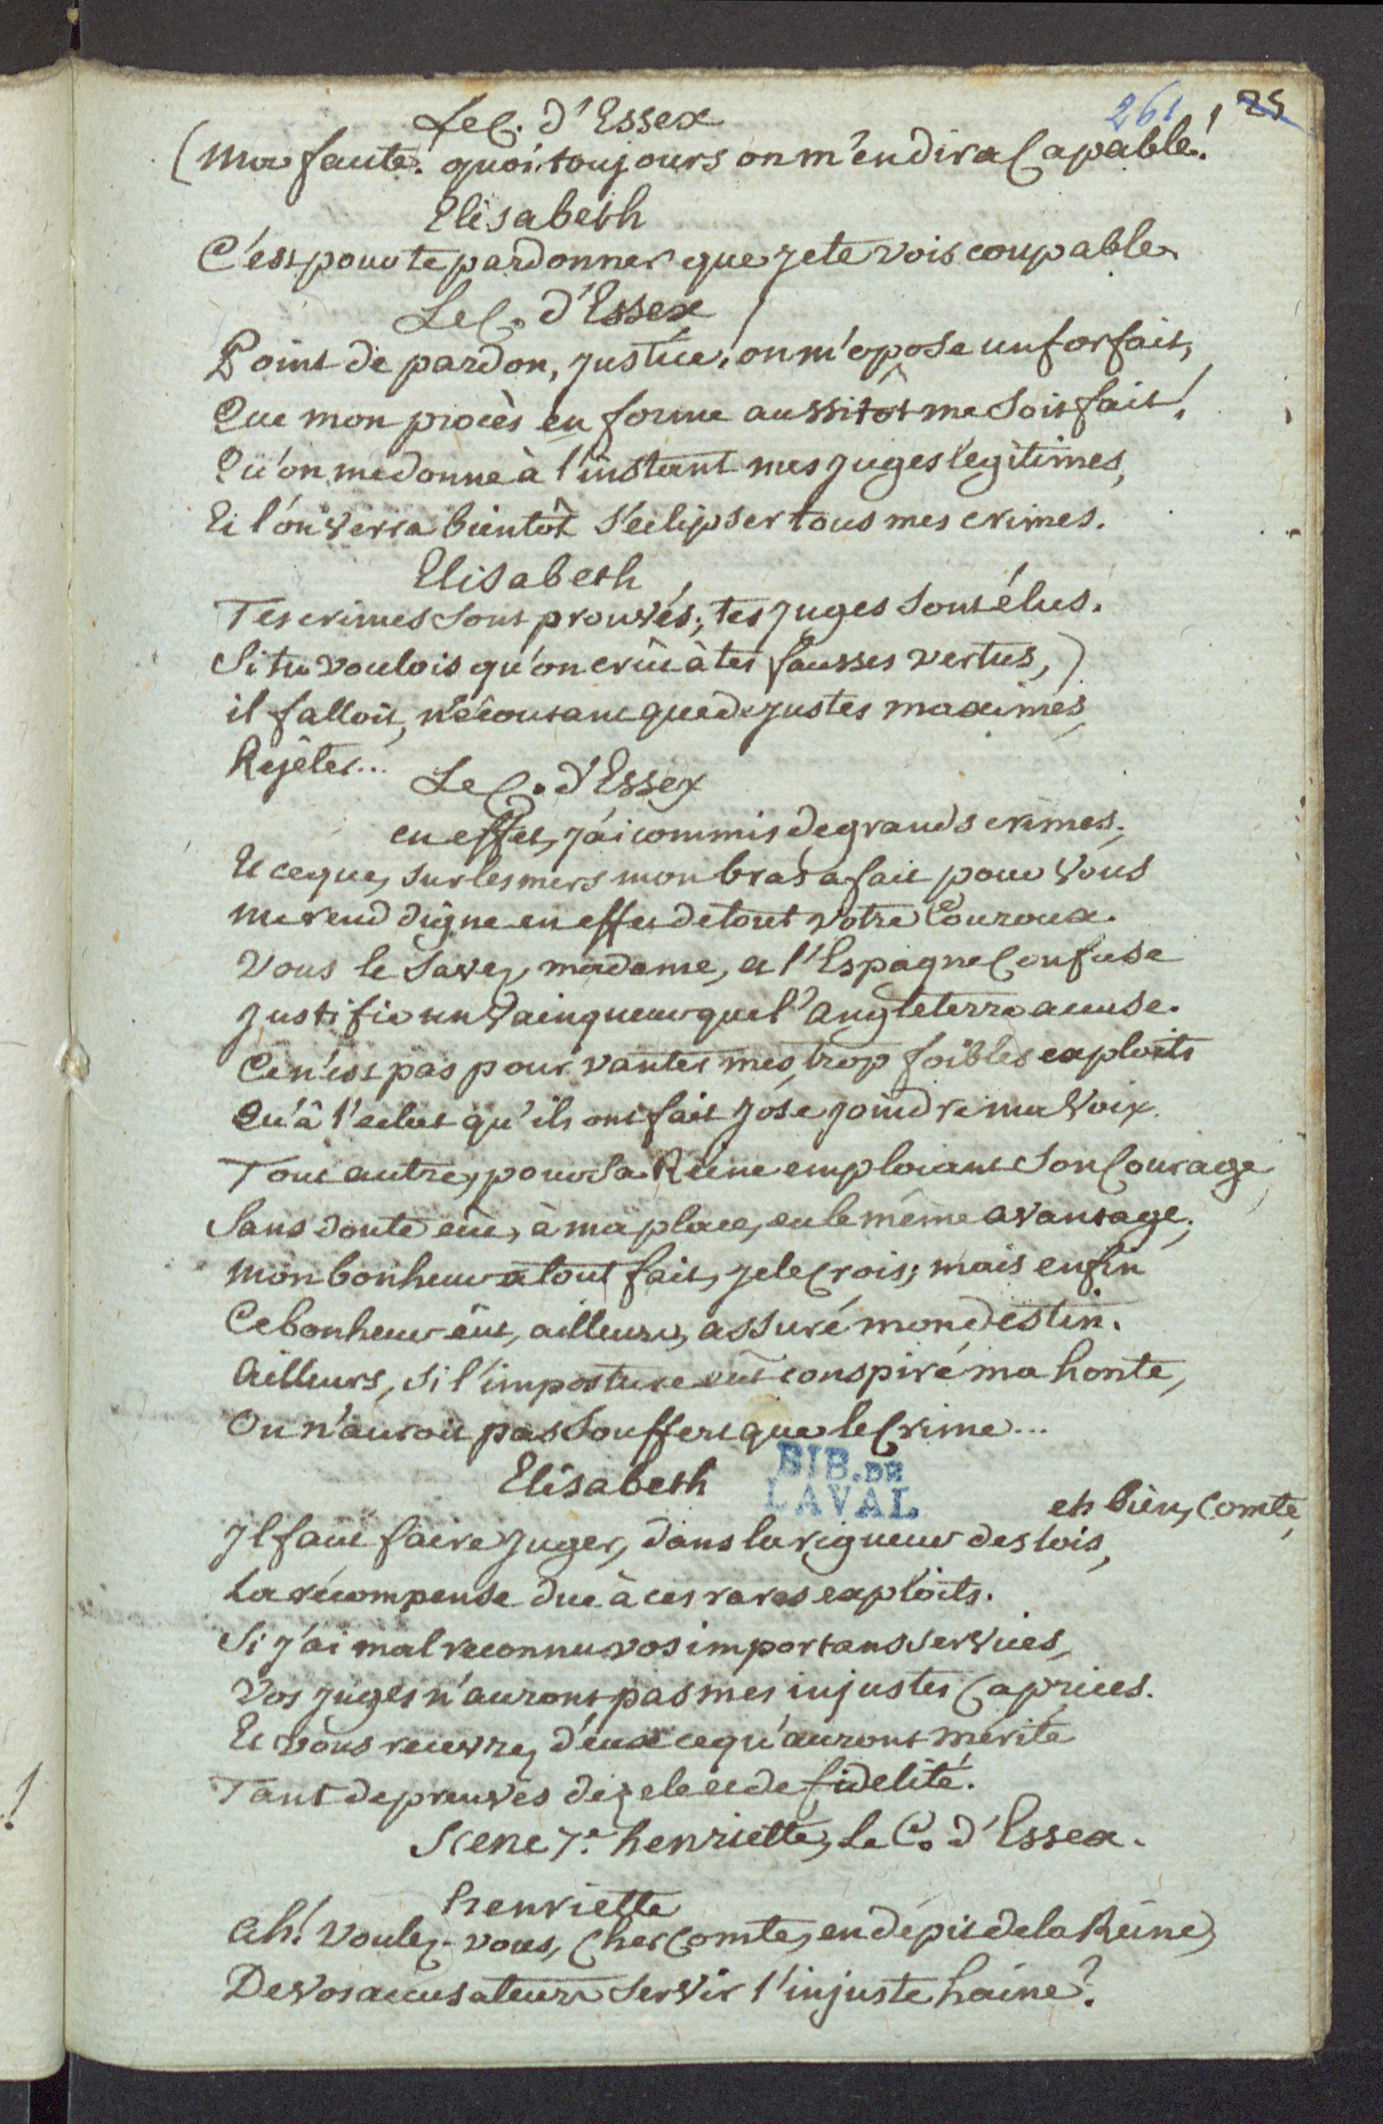 261 25
Le C. d'Essex
(Ma faute! quoi toujours on m'en dira Capable!
Elisabeth
C'est pour te pardonner que je te vois coupable.
Le C. d'Essex
Point de pardon, justice! on m'opose un forfait,
Que mon procès en forme aussitôt me soit fait!
Qu'on me donne à l'instant mes juges legitimes,
Et l'on verra bientôt s'eclipser tous mes crimes.
Elisabeth
Tes crimes sont prouvés; tes juges sont élus.
Si tu voulois qu'on crût à tes fausses vertus,)
il falloit, n'écoutant que de justes maximes,
Rejêter...
Le C. d'Essex
en effet, j'ai commis de grands crimes;
Et ce que, sur les mers mon bras a fait pour Vous
me rend digne en effet de tout votre Couroux.
Vous le savez, madame, et l'Espagne Confuse
justifie un Vainqueur que l'Angleterre accuse.
Ce n'est pas pour vanter mes trop foibles exploits
Qu'à l'eclat qu'ils ont fait j'ose joindre ma Voix.
Tout autre, pour sa Reine emploiant son Courage,
Sans doute eût, à ma place, eu le même avantage;
mon bonheur a tout fait, je le Crois; mais enfin
Ce bonheur eût, ailleurs, assuré mon destin.
Ailleurs, si l'imposture eût conspiré ma honte,
On n'auroit pas souffert que le Crime...
Elisabeth
BIB. DE
LAVAL
eh bien, Comte,
Il faut faire juger, dans la rigueur des lois,
La récompense due à ces rares exploits.
Si j'ai mal reconnu vos importans services,
Vos juges n'auront pas mes injustes Caprices.
Et vous recevrez d'eux ce qu'auront mérité
Tant de preuves de zele et de fidelité.
Scene 7e. henriette, Le C. d'Essex.
henriette
Ah! Voulez-vous, Cher Comte, en dépit de la Reine,
De vos accusateurs servir l'injuste haine?